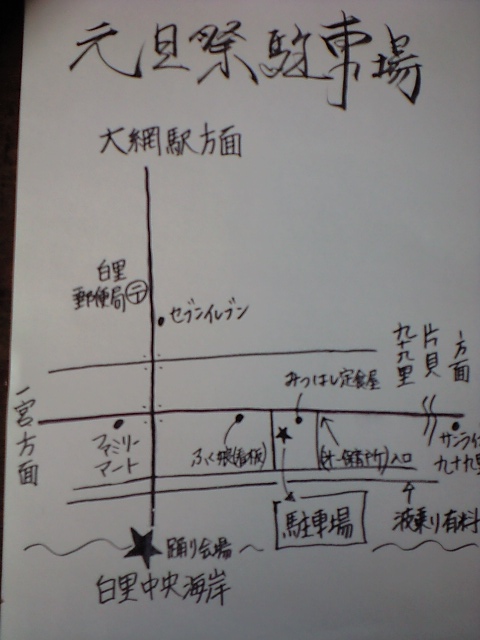 元旦祭駐車場
大網駅方面
白里
郵便局
〒
セブンイレブン
九十九里
片貝
方面
みつはし定食屋
一宮方面
ファミリー
マート
サンライ
九十九里
入口
駐車場
波乗り有料
踊り会場
白里中央海岸